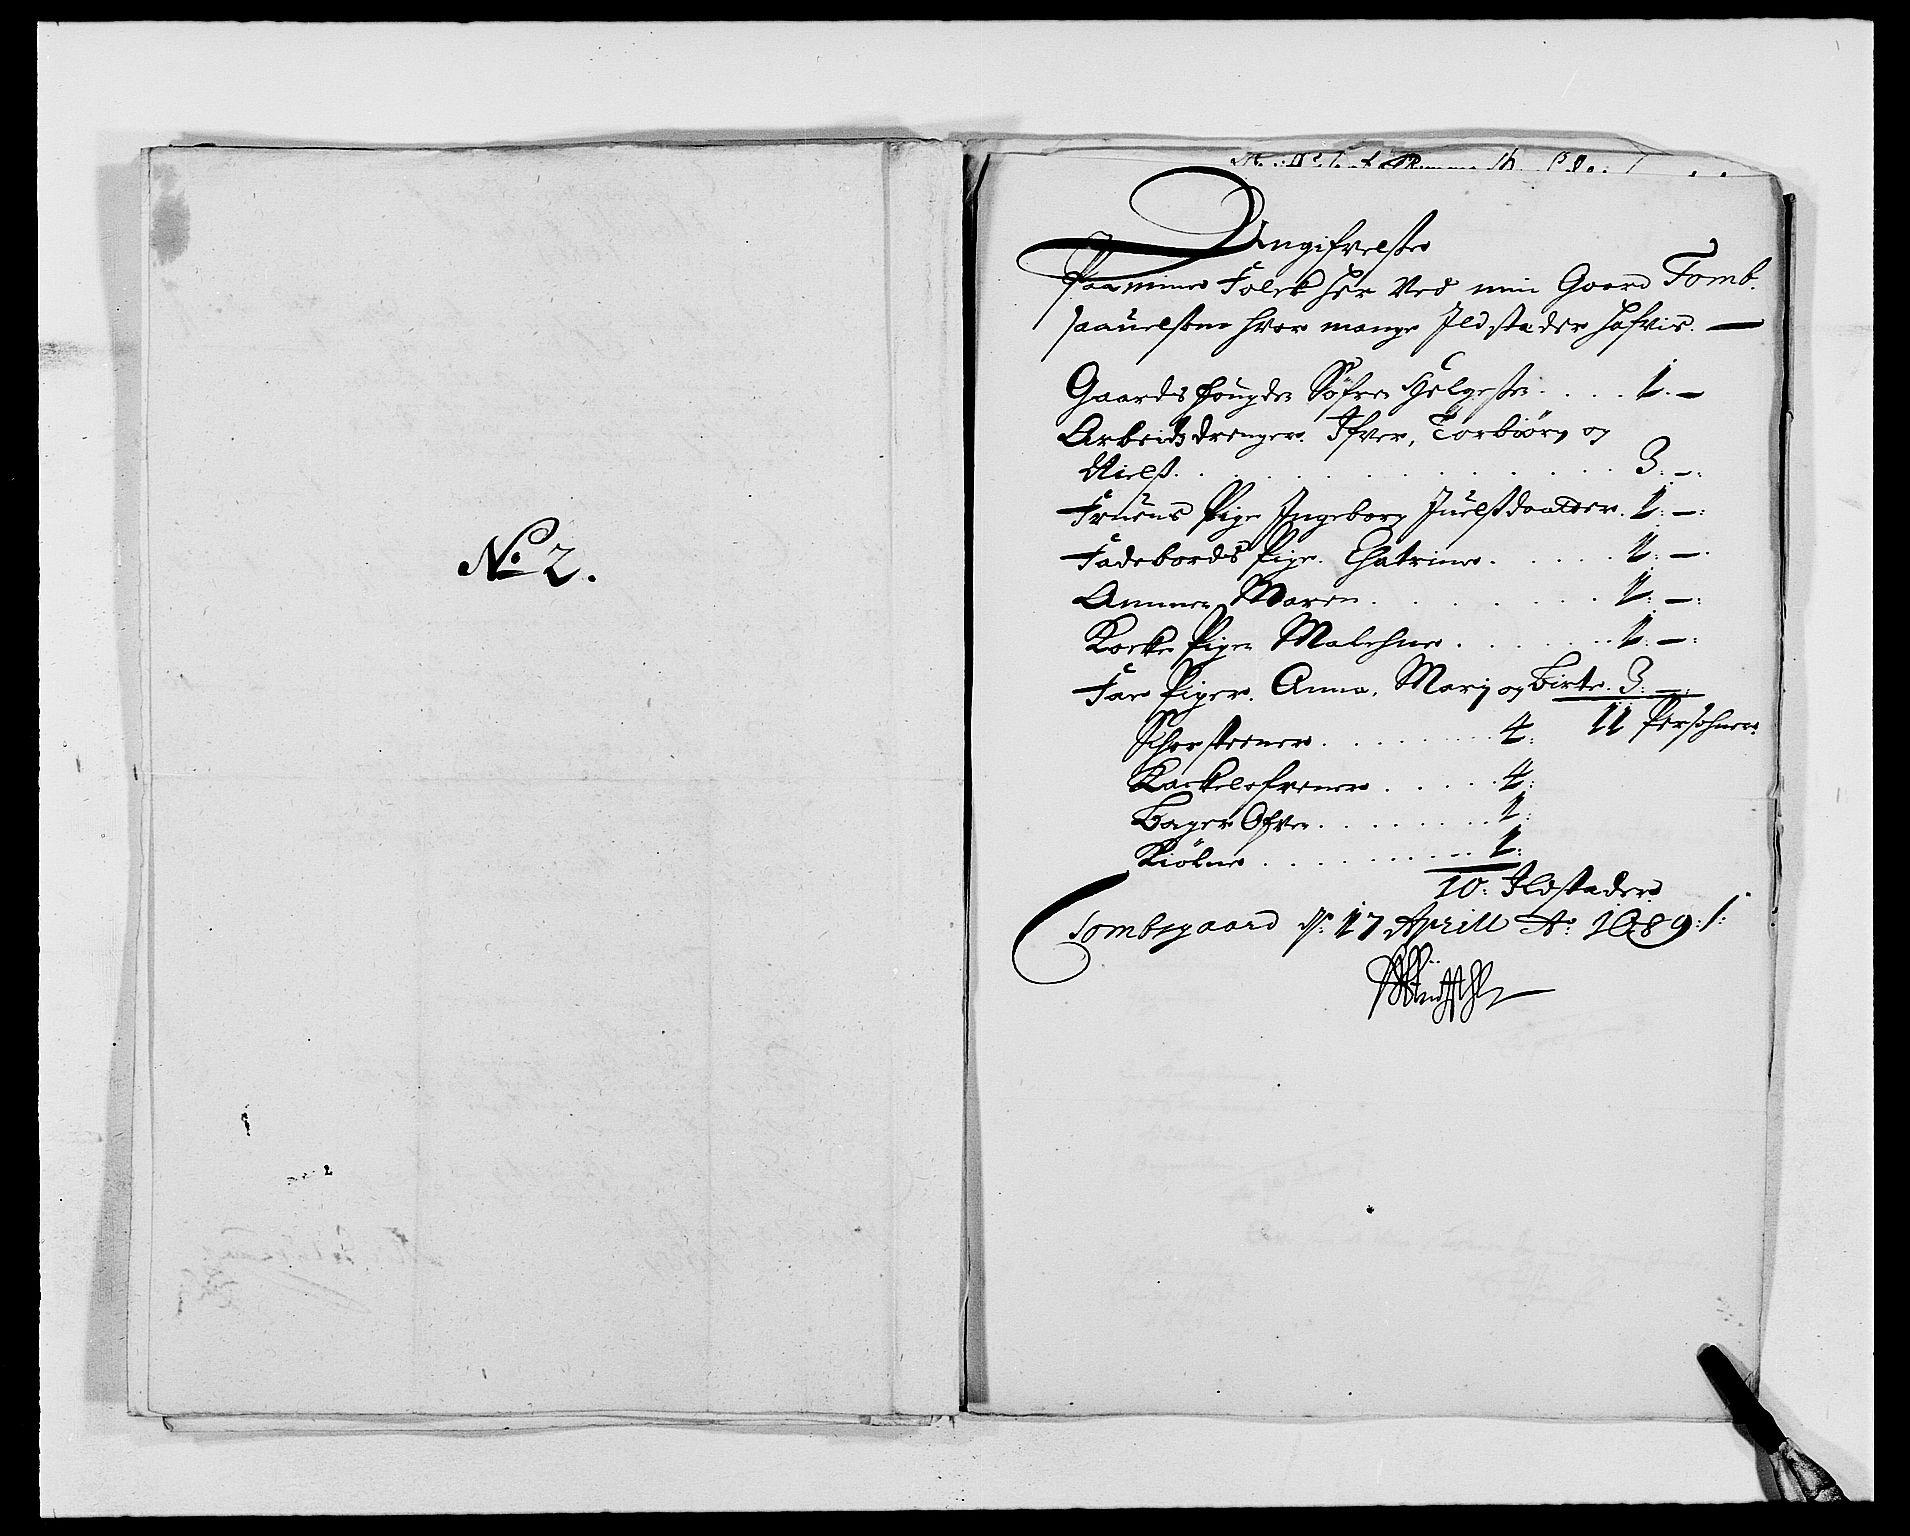 No 2.
Angifvelse
Paa mine Folck her Ved min Gaard Tomb.
saauelsom hvor mange Ildstæder hafvis. —
Gaards fougden Søfren Helgesen . . . . 1. —
Arbeidsdrenger. Ifver, Torbiørn og
Nielß . . . . . . . . . . . 3: —:
Fruens Pige Ingeborg Juelsdaatter. 1: —:
Fadebords Pige. Chatrine . . . . . 1: —.
Ammen Maren . . . . . . . 1: —:
Kocke Pigen Malehne . . . . . 1: —:
Fæe Piger. Anna, Marj og Birte. 3: —:
11 Persohner.
Schorsteener . . . . . . . 4:
Kackelofvener . . . . . 4:
Bager Ofven . . . . . . . 1:
Kiølne . . . . . . . . 1:
10: Ildstæder
Tombsgaard d: 17 Aprill Ao: 1689 ./: